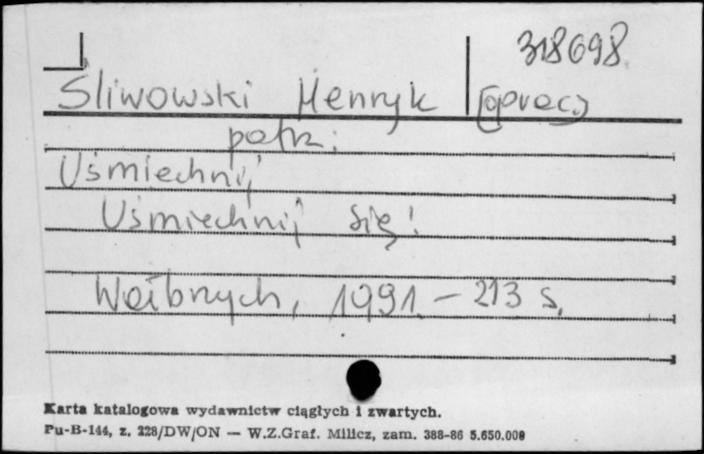 318698
Śliwowski Henryk (oprac.)
patrz:
Uśmiechnij
Uśmiechnij się!
Wałbrzych, 1991. – 213 s.
Karta katalogowa wydawnictw ciągłych i zwartych.
Pu-B-144, z. 228/DW/ON — W.Z.Graf. Milicz, zam. 388-86 5.650.000